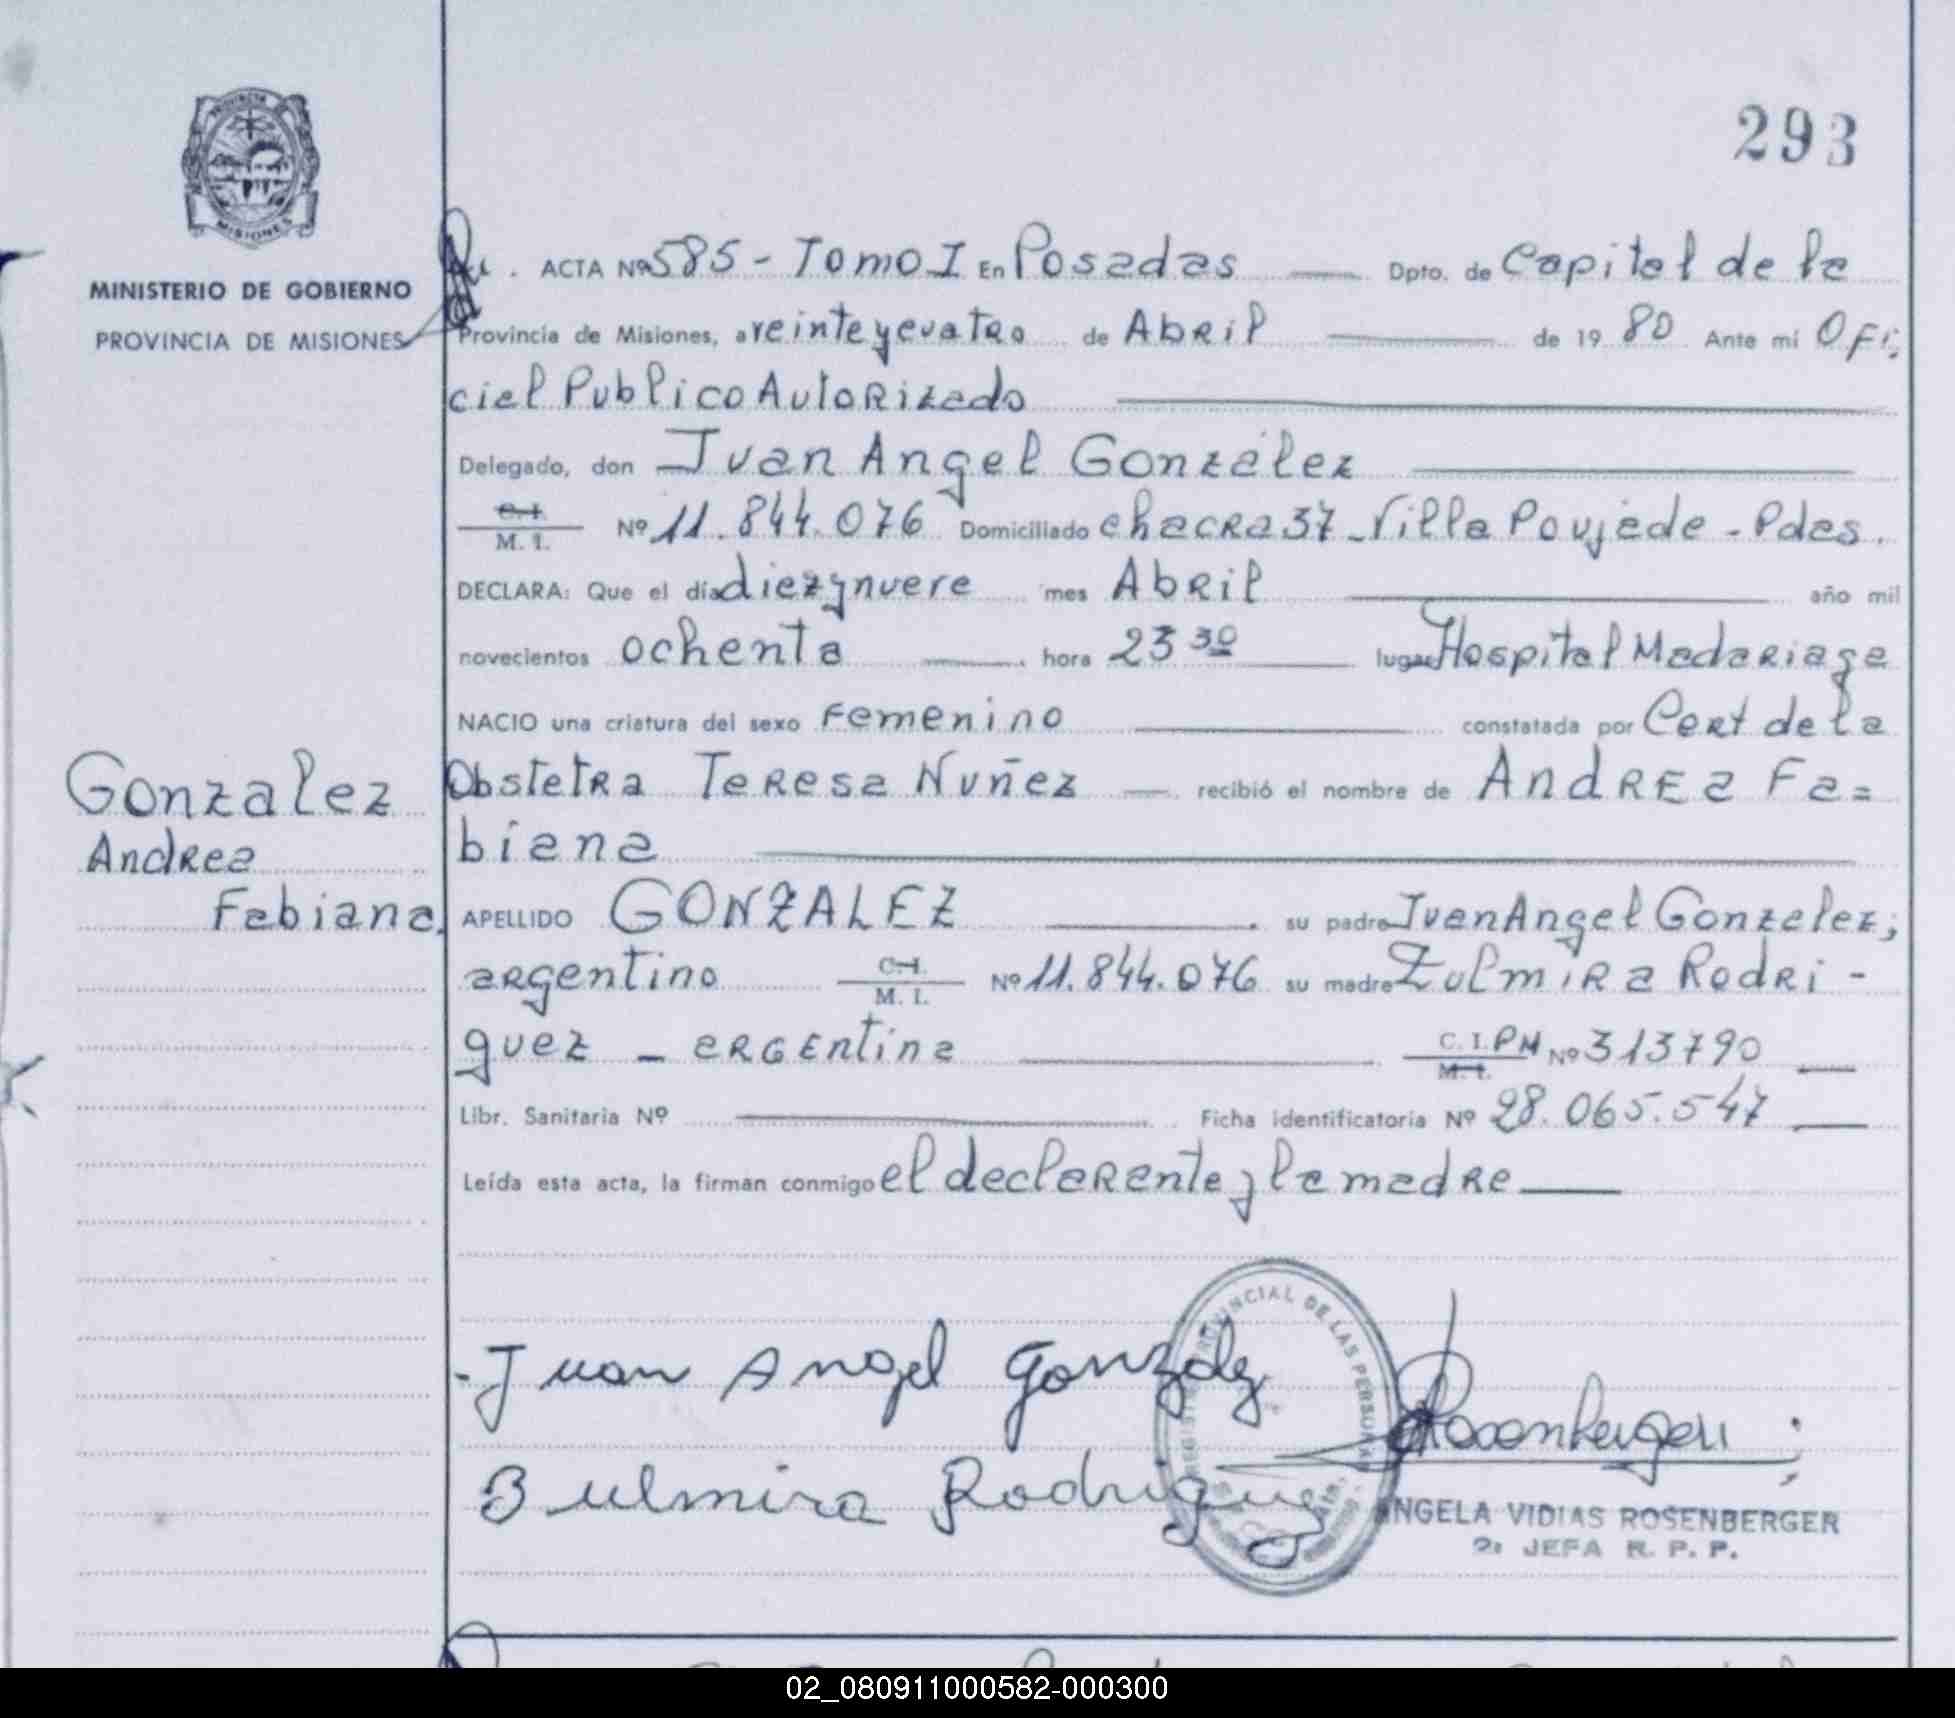 293
PROVINCIA DE
MISIONES
MINISTERIO DE GOBIERNO
PROVINCIA DE MISIONES
ACTA Nº 585 - Tomo I En Posadas Dpto. de Capital de la
Provincia de Misiones, a veinte y cuatro de Abril de 19 80 Ante mí Ofi
cial Publico Autorizado
Delegado, don Juan Angel González
C. I.
M. I. Nº 11.844.076 Domiciliado chacra 37 - Villa Poujade - Pdas.
DECLARA: Que el día diez y nueve mes Abril año mil
novecientos ochenta hora 23 30 lugar Hospital Madariaga
NACIO una criatura del sexo Femenino constatada por Cert de la
Obstetra Teresa Nuñez recibió el nombre de Andrea Fa=
biana
Gonzalez
Andrea
Fabiana
APELLIDO GONZALEZ su padre Juan Angel Gonzalez,
argentino C. I.
M. I. Nº 11.844.076 su madre Zulmira Rodri -
guez - argentina C. I. PM
M. I. Nº 313790
Libr. Sanitaria Nº Ficha identificatoria Nº 28.065.547
Leída esta acta, la firman conmigo el declarante y la madre
Juan Angel Gonzalez
Bulmira Rodriguez
PROVINCIAL DE LAS PERSONAS
Rosenberger
ANGELA VIDIAS ROSENBERGER
2ª JEFA R. P. P.
02_080911000582-000300